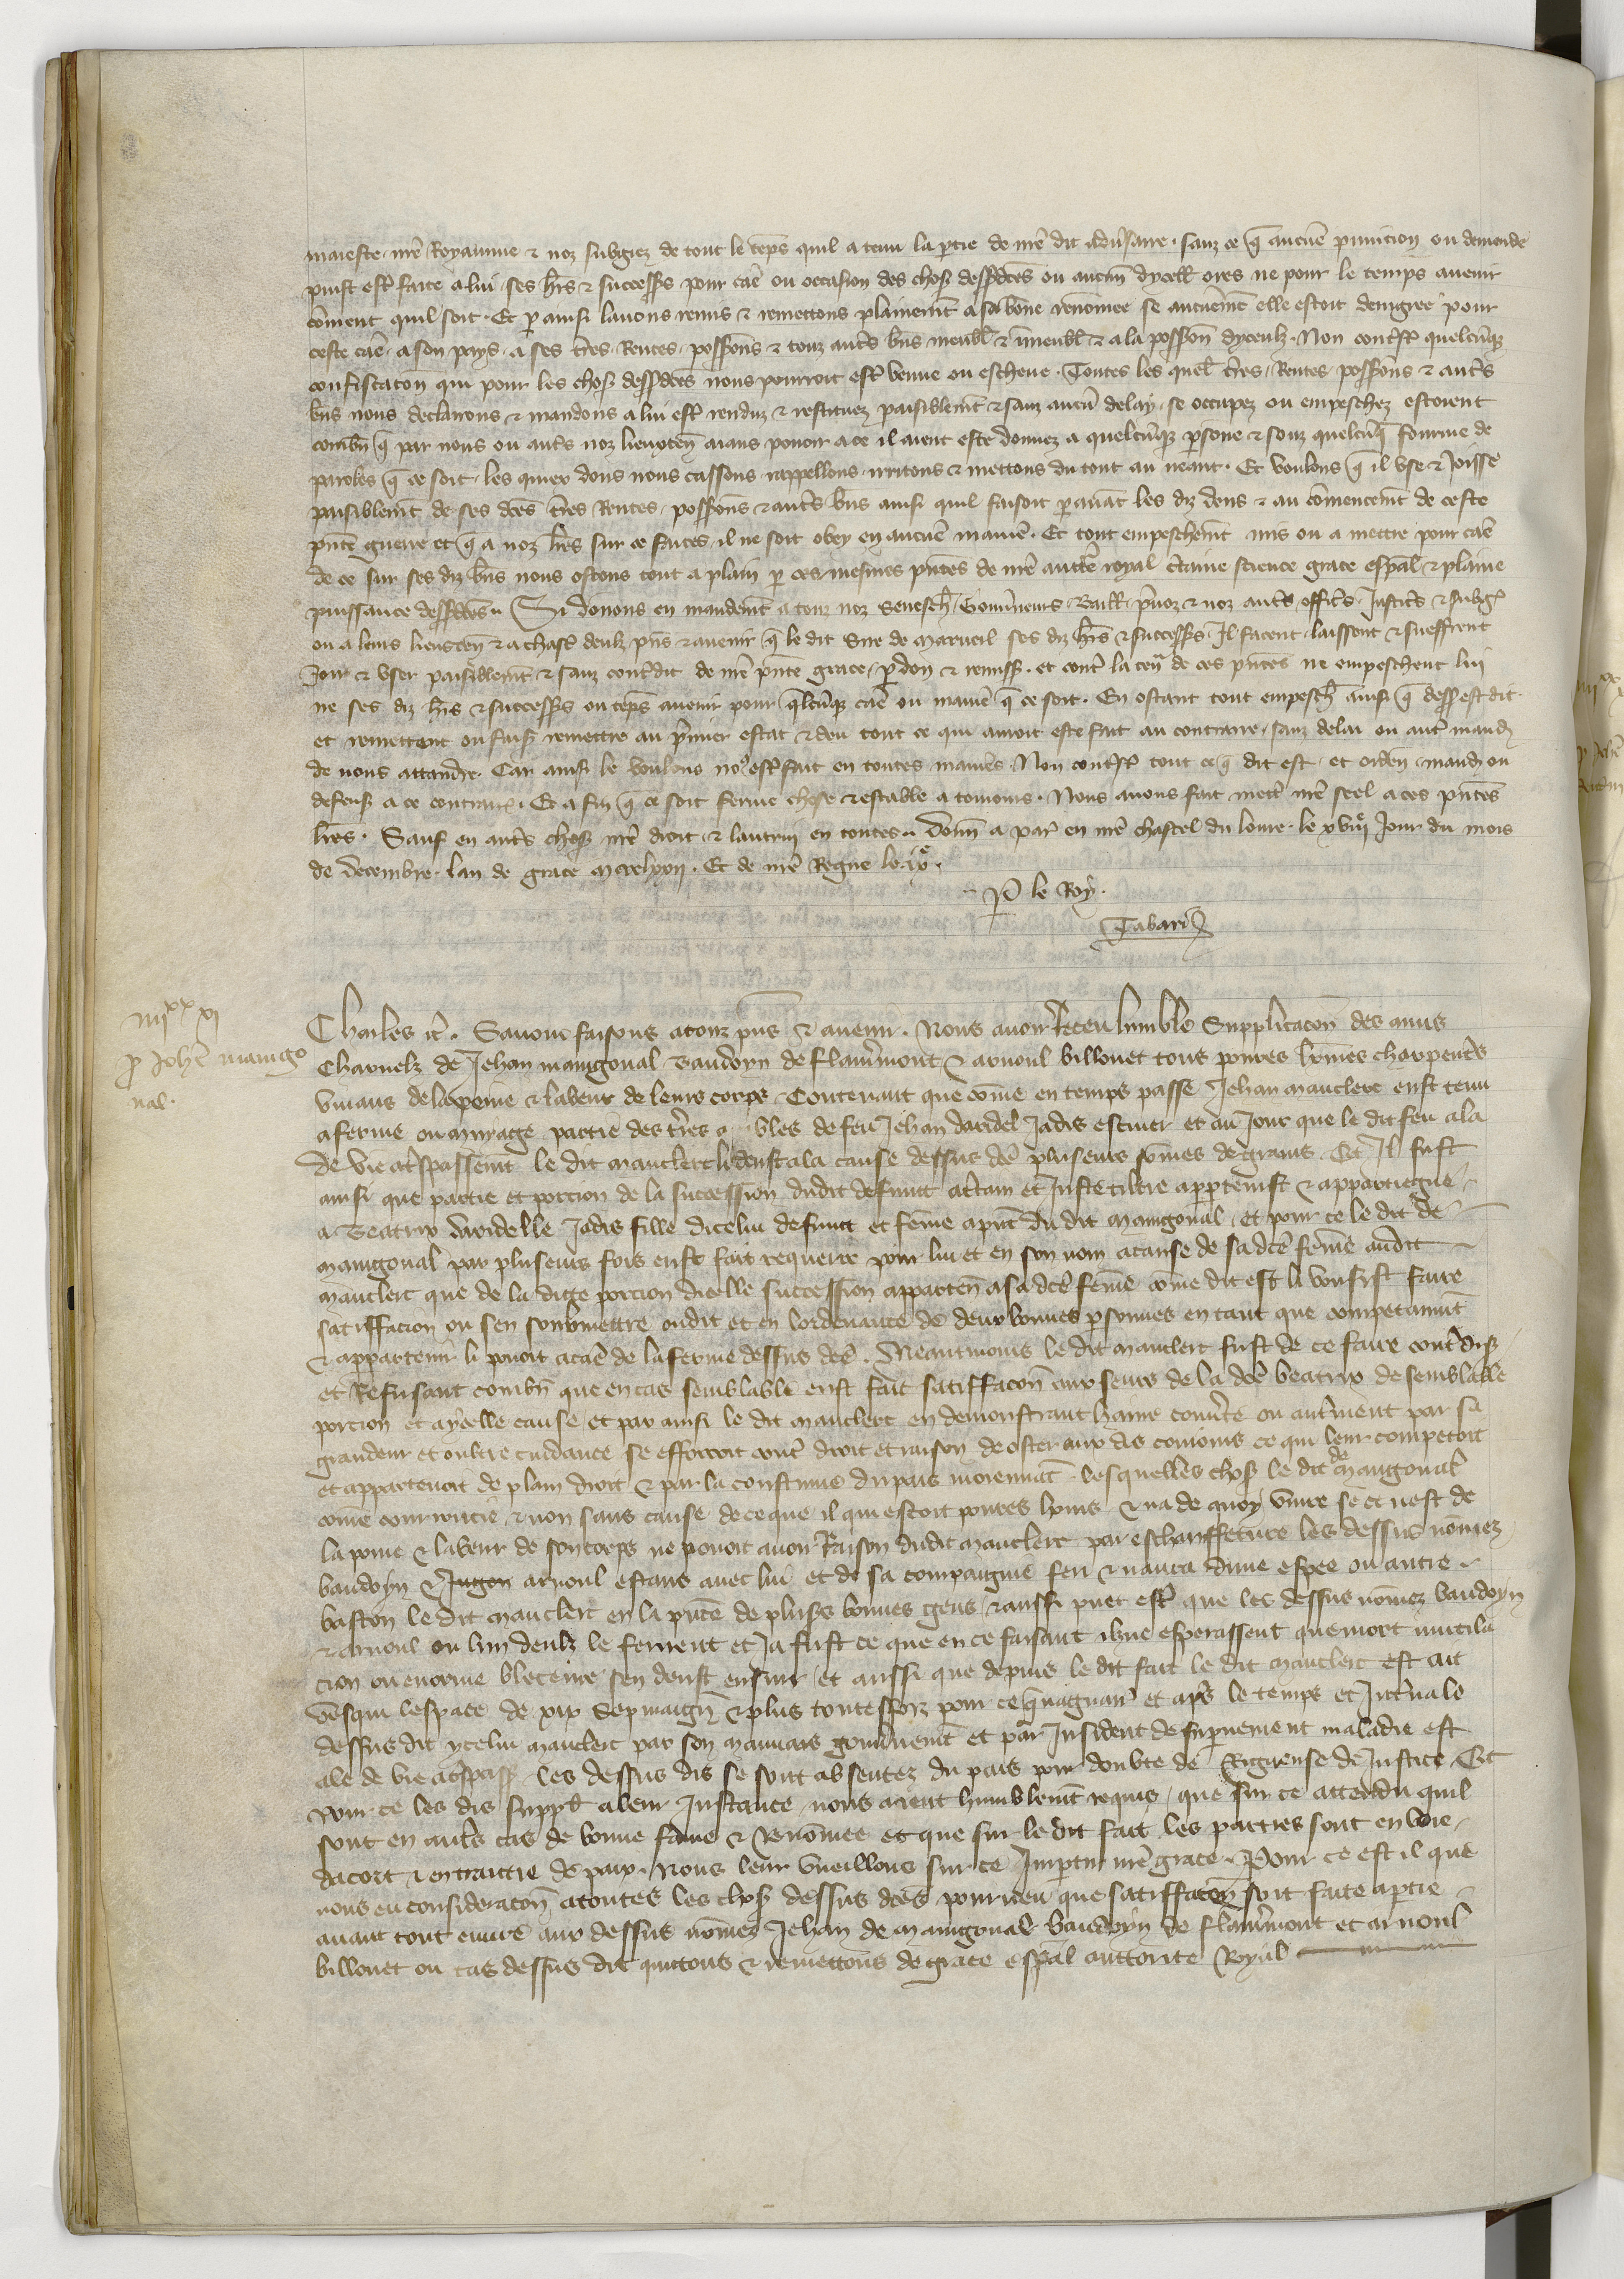 maieste nre Royaume & noz subgiez de tout le teps quil a tenu la ptie de nre dit adusaire. sanz ce q aucune punicion ou demande
puist estre faite a lui ses hrs & successrs pour cae ou occasion des choses dessdctes ou aucun dycell ores ne pour le temps auenir
coment quil soit. Et p ainsi lauons remis & remettons plainemt a sa bone renomee se aucunemt elle estoit denigree pour
ceste cae. a son pays. a ses tres. Rentes. possions & touz autrs bns meubl & immeubl & a la possion dyceulz. Non contrst quelcuqz
confiscaton qui pour les choses dessdctes nous pourroit estre venue ou escheue. Toutes les quel tres. Rentes. possions & autrs
bns nous declairons & mandons a lui estre renduz & restituez paisiblemt & sanz aucu delay se occupez ou empeschez estoient
combn q par nous ou autrs noz lieuxten aians pouoir a ce il aient este donnez a quelcuqz psone & souz quelcuq fourme de
paroles q ce soit. les quiex dons nous cassons rappellons irritons & mettons du tout au neant. Et voulons q il vse & joisse
paisiblemt de ses dctes tres Rentes. possions & autrs bns ainsi quil faisoit p auat les diz dons & au comencemt de ceste
pnte guerre et q a noz lres sur ce faites il ne soit obey en aucune maniere. Et tout empeschemt mis ou a mettre pour cae
de ce sur ses diz bns nous ostons tout a plain p ces mesmes pntes de nre aucte royal ctaine science grace espal & plaine
puissance dessdctes. Si donons en mandemt a touz noz Senesch. Gouuneurs. Baill. pruoz & noz autrs offics. Justics & subgz
ou a leurs lieuten & a chasc deulz pns & auenir q le dit Sire de Mareuil ses diz hrs & successrs. Il facent. laissent & sueffrent
Joir & vser paisiblemt & sanz contdit de nre pnte grace. pdon & remiss. et contr la tenr de ces pntes ne empeschent lui
ne ses diz hrs & successrs ou teps auenir pour qlcuqz cae ou maniere q ce soit. En ostant tout empesch ainsi q dess est dit
et remettant ou faiss remettre au pmier estat & deu tout ce qui auroit este fait au contraire. sanz delai ou autre mand
de nous attandre. Car ainsi le voulons nos estre fait en toutes manies. Non contrst tout ce q dit est. et orden mand ou
defens a ce contraires. Et a fin q ce soit ferme chose & estable a touiours. Nous auons fait mettre nre seel a ces pntes
lres. Sauf en autrs choses nre droit & lautrui en toutes. Donn a par en nre chastel du louure. le xviiie Jour du mois
de decembre. lan de grace mccclxxii. Et de nre Regne le ixe.
P le Roy.
Tabari
iiiixx xi
p Johe manigo
nal.
Charles &c. Sauoir faisons a touz pns & auenir. Nous auoir Receu humble Supplicacon des amis
Charnelz de Jehan manigonal Baudoyn de flaurmont & arnoul billouet tous poures homes charpentrs
viuans de la peine & labeur de leurs corps Contenant que come en temps passe Jehan mauclerc eust tenu
a ferme ou muyage partie des tres a bles de feu Jehan daridel Jadis escuier et au Jour que le dit feu ala
de vie a trspassemt le dit mauclerc li deust a la cause dessus dcte pluseurs somes de grains. Et Il fust
ainsi que partie et porcion de la succession dudit defunct a certain et Juste tiltre apptenist & appartiegne
a Beatrix daridelle Jadis fille dicelui defunct et feme a pnt du dit manigonal. et pour ce le dit de
manigonal par pluseurs fois eust fait requerre pour lui et en son nom a cause de sa dcte feme audit
mauclerc que de la dicte porcion dicelle succession apparten a sa dcte feme come dit est li vousist faire
satiffacion ou sen soubmettre oudit et en lordenance de deux bonnes psonnes en tant que competamut
& appartenir li pouoit a cae de la ferme dessus dcte. Neantmoins le dit mauclerc fust de ce faire contrdiss
et Refusant combn que en cas semblable eust fait satiffacon aux seurs de la dcte beatrix de semblable
porcion et a ycelle cause et par ainsi le dit mauclerc en demonstrant haine couurte ou autrment par sa
grandeur et oultre cuidance se efforcoit contr droit et raison de oster aux dis conioins ce qui leur competoit
et appartenoit de plain droit & par la coustume du pais moiennat. lesquelles choses le dit de manigonal
come courroucie & non sans cause de ce que il qui estoit poures homs & na de quoy viure se ce nest de
la peine & labeur de son corps ne pouoit auoir Raison dudit mauclerc par eschauffeture les dessus nomez
baudoyn & Jugon arnoul estans auec lui et de sa compaignie feri & naura dune espee ou autre
baston le dit mauclerc en la pnce de pluss bonnes gens & aussi puet estre que les dessus nomez baudoyn
& arnoul ou lun deulz le ferirent et Ja fust ce que en ce faisant ilz ne esperassent que mort mutila
cion ou enorme bleceure sen deust ensuir et aussi que depuis le dit fait le dit mauclerc est ait
vesqui lespace de xix Sepmaign & plus toutesfoiz pour ce q nagaire et aps le temps et Jntruale
dessus dit ycelui mauclerc par son mauuais gouunemt et par Jnsident de supuenement maladie est
ale de vie a trspass les dessus dis se sont absentez du pais pour doubte de Rigueuse de Justice. Et
pour ce les dis suppl a leur Jnstance nous aient humblemt requis que sur ce attendu quil
sont en autrs cas de bonne fame & Renomee et que sur le dit fait les parties sont en voie
dacort & en traictie de paix. Nous leur vueillons sur ce Jmpartir nre grace. Pour ce est il que
nous en consideracon a toutes les choses dessus dctes pourueu que satiffacon soit faite a ptie
auant tout euure aux dessus nomez Jehan de manigonal baudoyn de flaurmont et arnoul
billouet ou cas dessus dit quittons & remettons de grace espal auttorite Royal